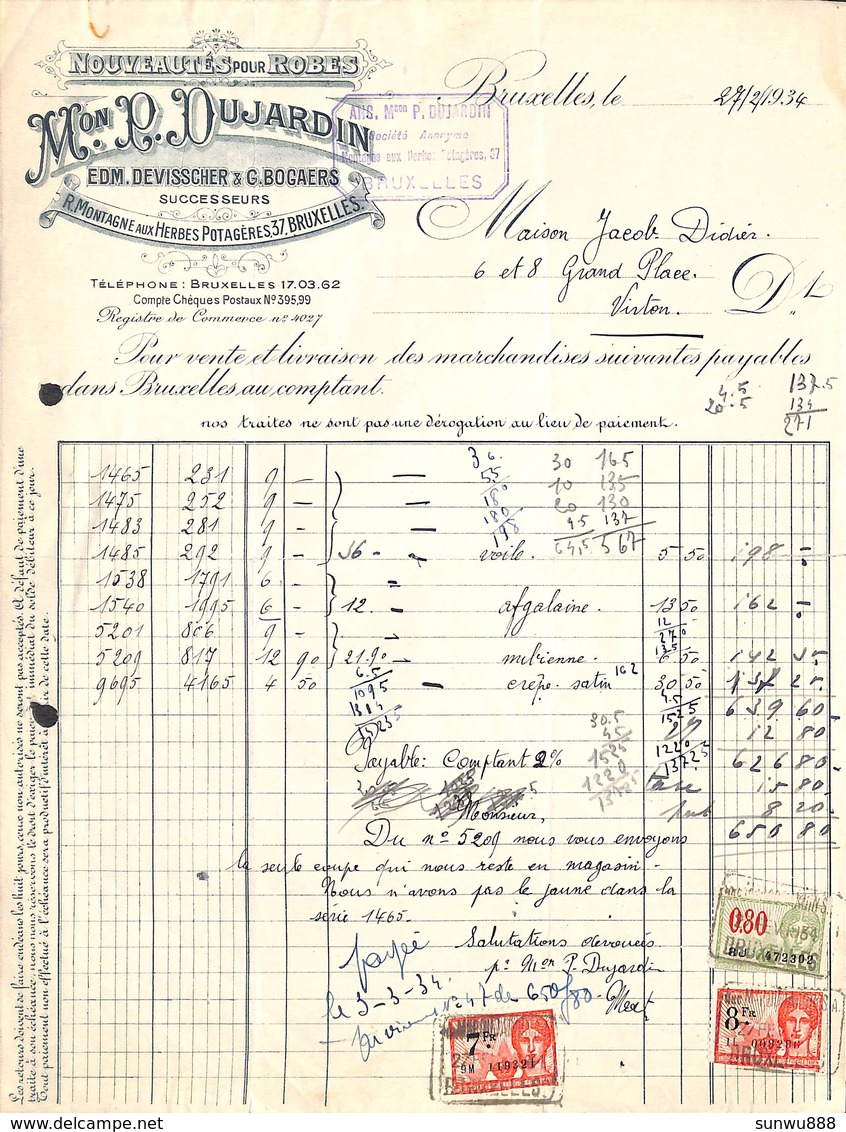 NOUVEAUTÉS POUR ROBES
Mon. P. DUJARDIN
EDM. DEVISSCHER & G. BOGAERS
SUCCESSEURS
R. MONTAGNE AUX HERBES POTAGÈRES, 37, BRUXELLES.
TÉLÉPHONE : BRUXELLES 17.03.62
Compte Chèques Postaux No 395,99
Registre de Commerce no 4027
ANC. Mson P. DUJARDIN
Société Anonyme
Montagne aux Herbes Potagères, 37
BRUXELLES
Bruxelles, le 27/2/1934
Maison Jacob Didier.
6 et 8 Grand Place.
Virton.
Pour vente et livraison des marchandises suivantes payables
dans Bruxelles, au comptant.
4.5 137.5
20.5 134
271
nos traites ne sont pas une dérogation au lieu de paiement.
36 30 165
5.5 10 135
180 20 130
180 4.5 137
198 64,5 567
1465 231 9 -
1475 252 9 -
1483 281 9 -
1485 292 9 - 36 - " voile. 5 50 198 -
1538 1791 6 -
1540 1995 6 - 12. - afgalaine. 13 50 162 -
5201 806 9 -
5209 817 12 90 21.90 - 6 50 142 35
9695 4165 4 50 - crêpe satin 30 50 137 25
639 60
12 80
Payable: Comptant 2% 626 80
taxe 15 80
8 20
650 80
Monsieur,
Du no 5209 nous vous envoyons
la seule coupe qui nous reste en magasin -
Nous n'avons pas le jaune dans la
série 1465.
Salutations dévouées
pr Mon P. Dujardin
payé
le 3-3-34.
no 47 de 650f80
0.80
BU 472302
BRUXELLES
7 FR
9M 119321
8 FR
27 FEV
Les retours doivent se faire endéans les huit jours, ceux non autorisés ne seront pas acceptés. A défaut de paiement d'une
traite à son échéance, nous nous réservons le droit d'exiger le paiement immédiat du solde débiteur à ce jour.
Tout paiement non effectué à l'échéance sera productif d'intérêt à partir de cette date.
sunwu888